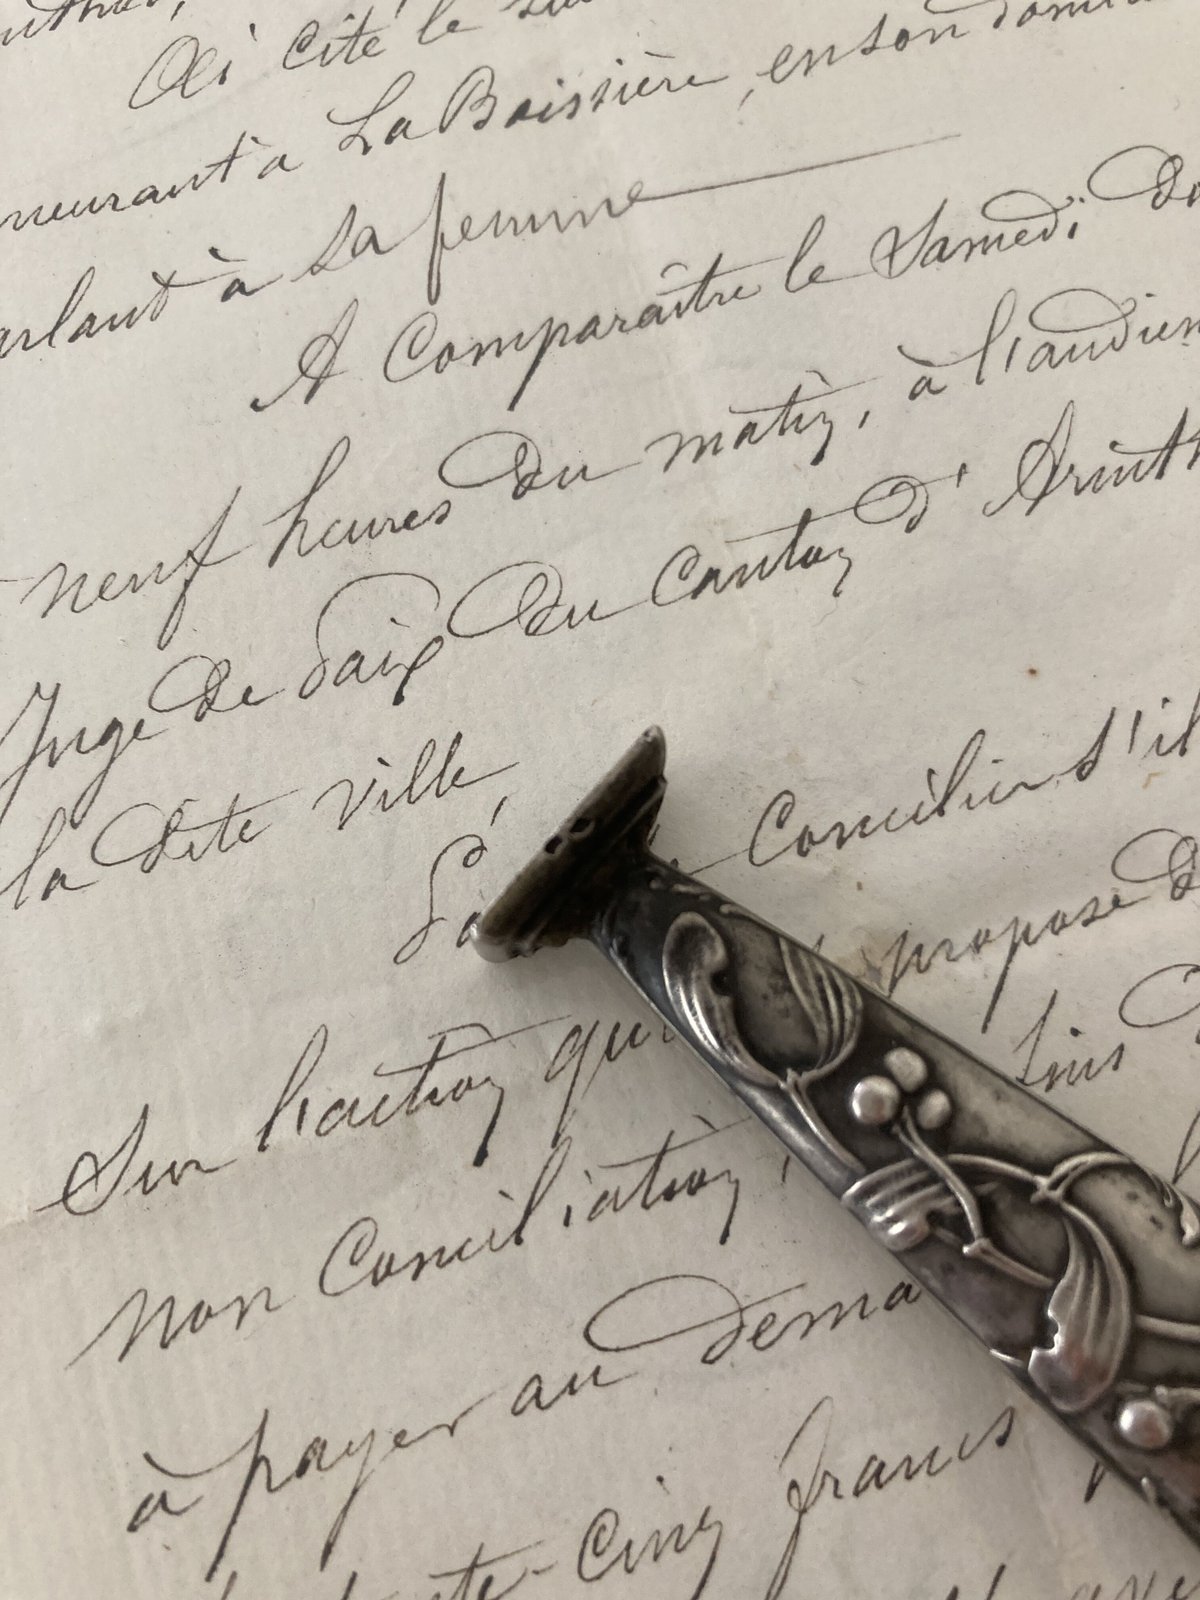 Ai cité le
meurant à La Boissière, en son domi
arlant à sa femme
A Comparaître le Samedi Do
neuf heures du matin, à l'audien
Juge de Paix du Canton d'Arinth
la dite ville,
Pa Concilier s'il
Sur l'action qu propose d
non Conciliation,
à payer au dema
cinq francs